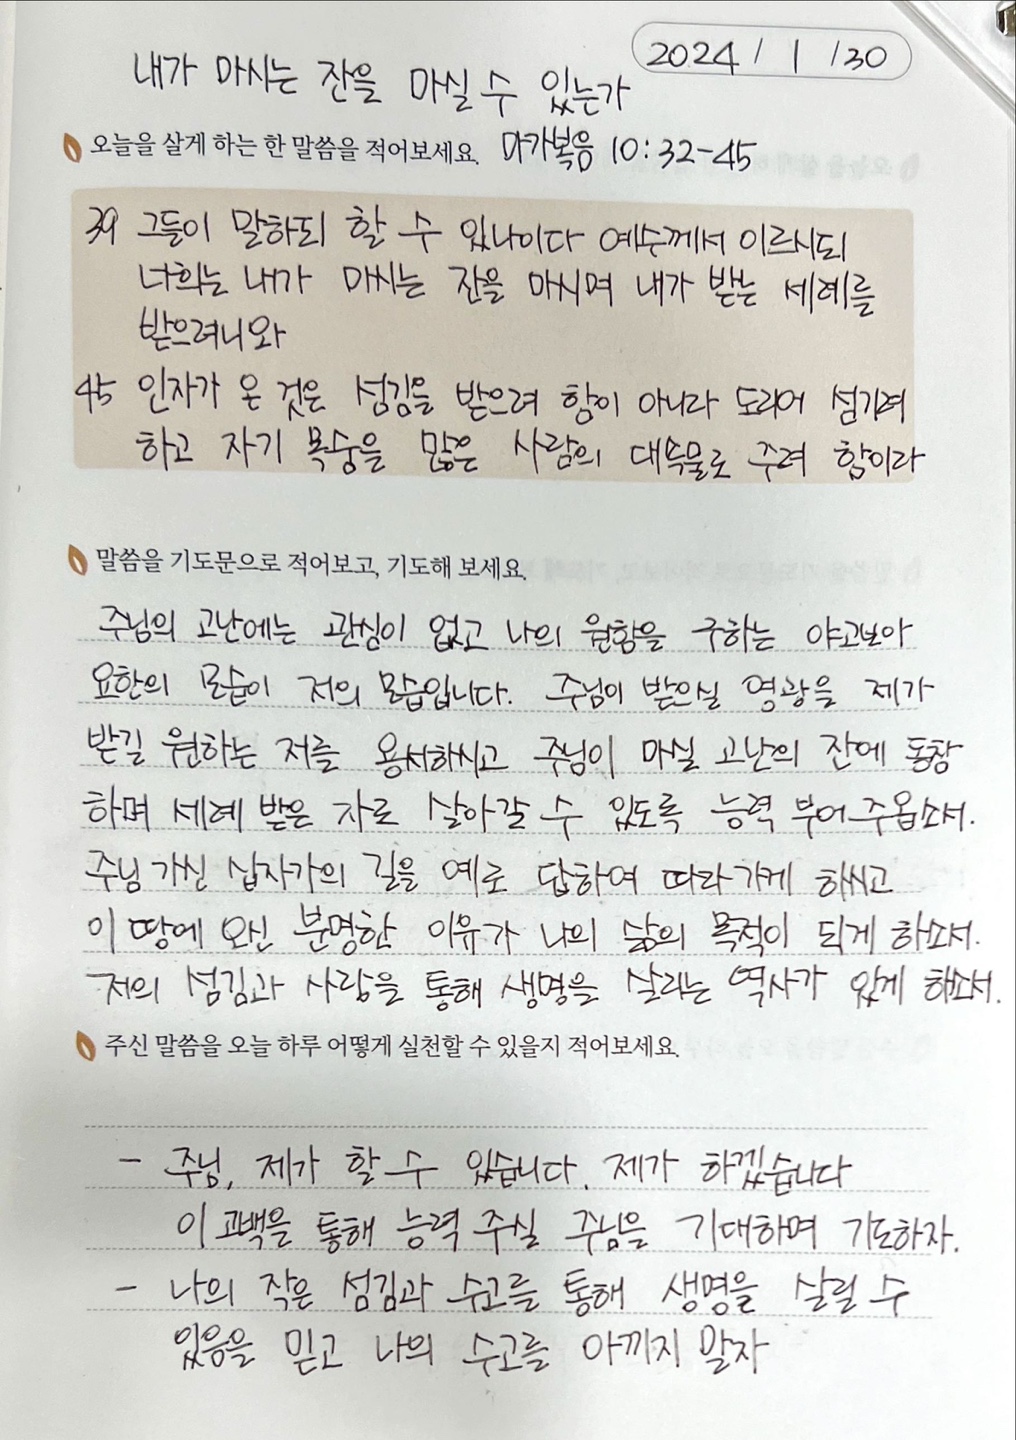 2024 / 1 / 30
내가 마시는 잔을 마실 수 있는가
오늘을 살게 하는 한 말씀을 적어보세요. 마가복음 10:32-45
39 그들이 말하되 할 수 있나이다 예수께서 이르시되
너희는 내가 마시는 잔을 마시며 내가 받는 세례를
받으려니와
45 인자가 온 것은 섬김을 받으려 함이 아니라 도리어 섬기려
하고 자기 목숨을 많은 사람의 대속물로 주려 함이라
말씀을 기도문으로 적어보고, 기도해 보세요.
주님의 고난에는 관심이 없고 나의 원함을 구하는 야고보와
요한의 모습이 저의 모습입니다. 주님이 받으실 영광을 제가
받길 원하는 저를 용서하시고 주님이 마실 고난의 잔에 동참
하며 세례 받은 자로 살아갈 수 있도록 능력 부어주옵소서.
주님 가신 십자가의 길을 예로 답하여 따라가게 하시고
이 땅에 오신 분명한 이유가 나의 삶의 목적이 되게 하소서.
저의 섬김과 사랑을 통해 생명을 살리는 역사가 있게 하소서.
주신 말씀을 오늘 하루 어떻게 실천할 수 있을지 적어보세요.
- 주님, 제가 할 수 있습니다. 제가 하겠습니다
이 고백을 통해 능력 주실 주님을 기대하며 기도하자.
- 나의 작은 섬김과 수고를 통해 생명을 살릴 수
있음을 믿고 나의 수고를 아끼지 말자